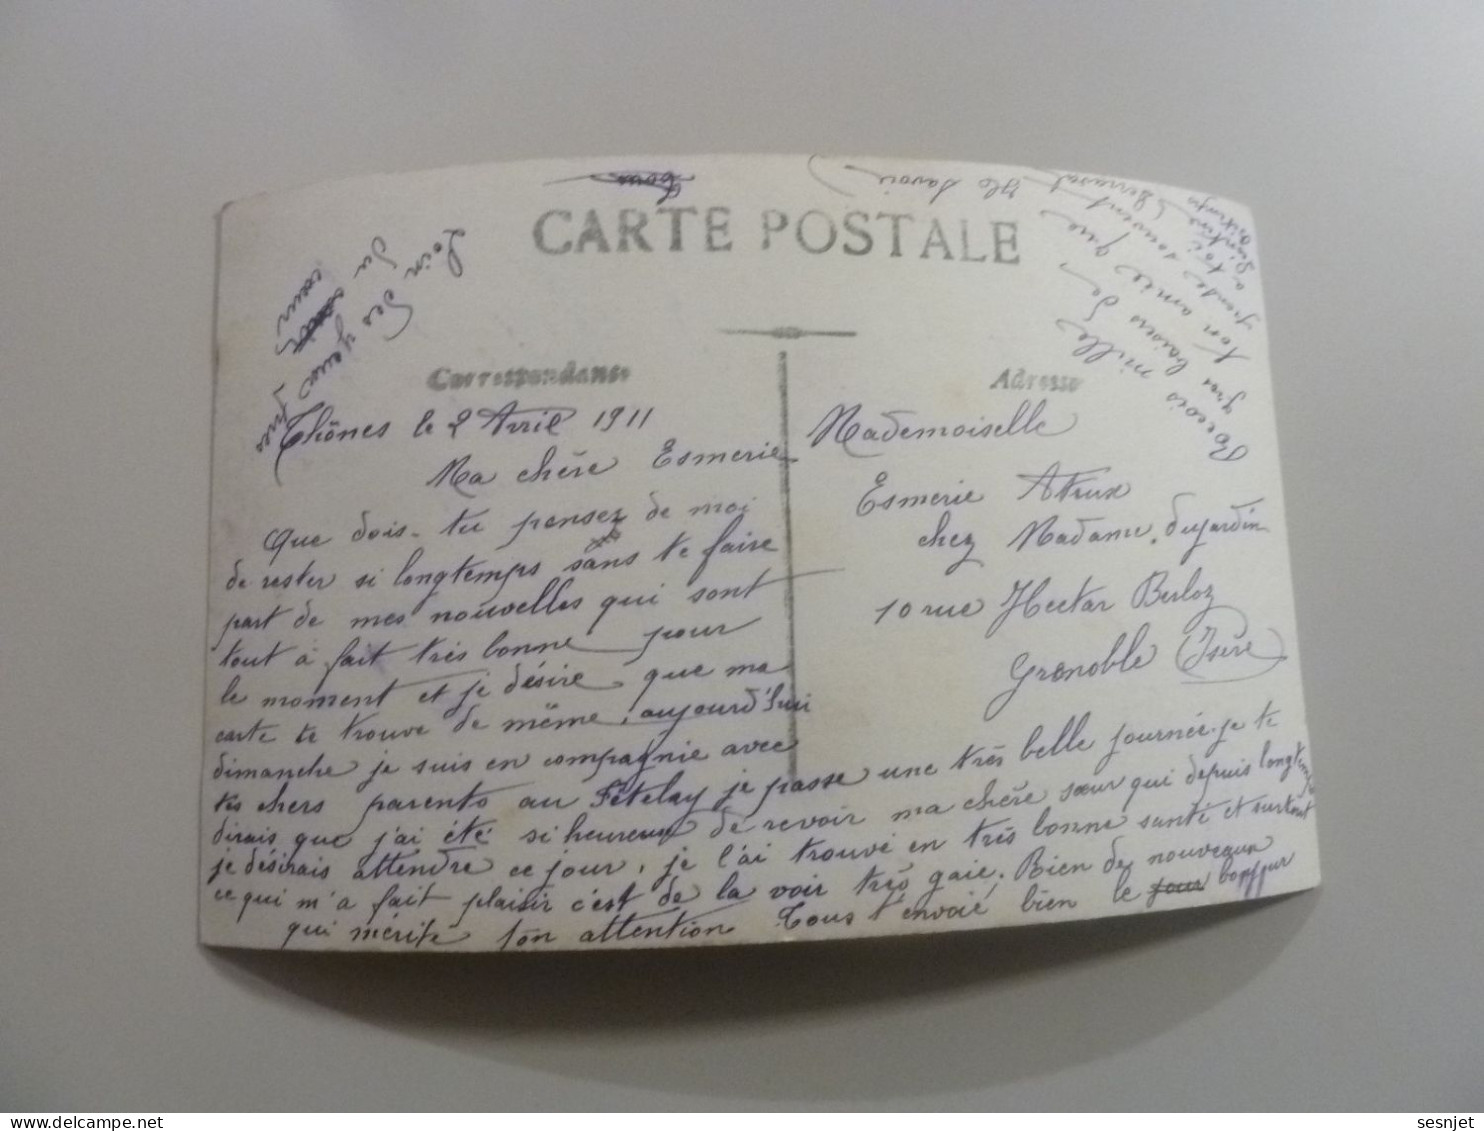 CARTE POSTALE
Correspondance
Adresse
Loin des yeux près
du cœur
Thônes le 2 Avril 1911
Ma chère Esmerie
Que dois-tu pensez de moi
de rester si longtemps sans te faire
part de mes nouvelles qui sont
tout à fait très bonne pour
le moment et je désire que ma
carte te trouve de même, aujourd'hui
dimanche je suis en compagnie avec
tes chers parents au je passe une très belle journée. je te
dirais que j'ai été si heureux de revoir ma chère sœur qui depuis longtemps
je désirais attendre ce jour, je l'ai trouvé en très bonne santé et surtout
ce qui m'a fait plaisir c'est de la voir très gaie. Bien de nouveaux
qui mérite ton attention Tous t'envoié bien le bonjour
Mademoiselle
Esmerie Atrux
chez Madame dujardin
10 rue Hectar Berloz
Grenoble (Isère)
Reçois mille
gros baisers de
ton amie que
pense souvent
a toi
Hte Savoie
sesnjet